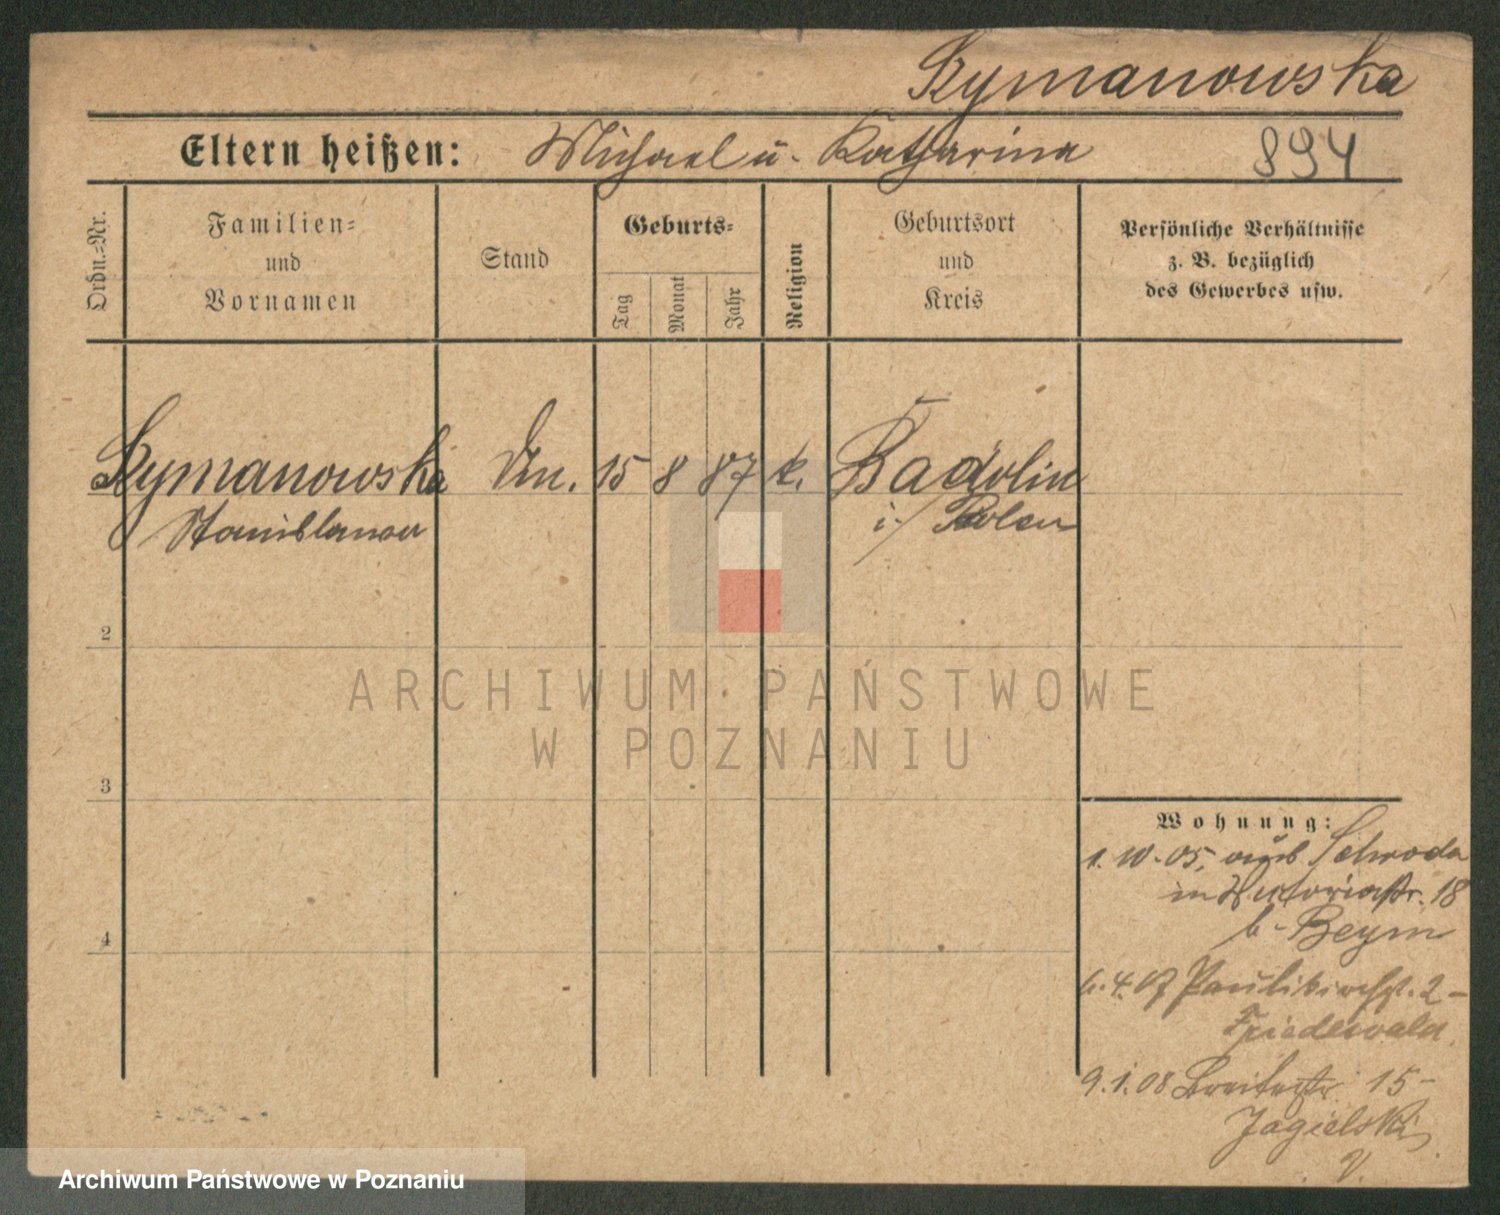 Szymanowska
Eltern heißen: Michael u. Katharina 894
Ordn.-Nr.
Familien-
und
Vornamen
Stand
Geburts-
Tag
Monat
Jahr
Religion
Geburtsort
und
Kreis
Persönliche Verhältnisse
z. B. bezüglich
des Gewerbes usw.
Szymanowska 15 8 87 k.
Stanislawa i/ Polen
2
3
4
Wohnung:
1. 10. 05. aus Schroda
in Victoriastr. 18
b. Beym
6. 4. 07 Paulikirchst. 2-
Friedewald
9. 1. 08 Breitestr. 15-
Jagielski
ARCHIWUM PAŃSTWOWE
W POZNANIU
Archiwum Państwowe w Poznaniu